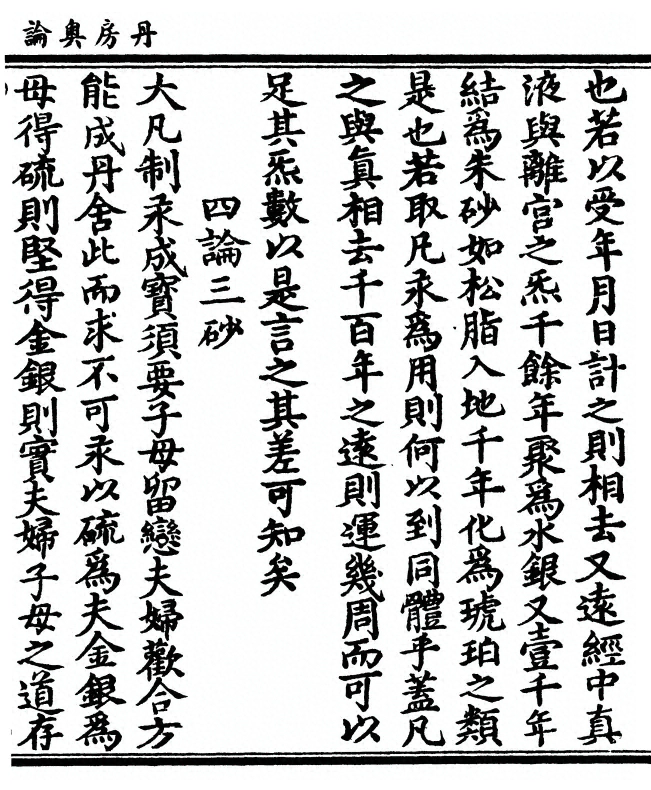 丹房奥論
也若以受年月日計之則相去又遠經中真
液與離宫之炁千餘年聚爲水銀又壹千年
結爲朱砂如松脂入地千年化爲琥珀之類
是也若取凡汞爲用則何以到同體乎蓋凡
之與眞相去千百年之遠則運幾周而可以
足其炁數以是言之其差可知矣
四論三砂
大凡制汞成寶須要子母留戀夫婦歡合方
能成丹舍此而求不可汞以硫爲夫金銀爲
母得硫則堅得金銀則實夫婦子母之道存